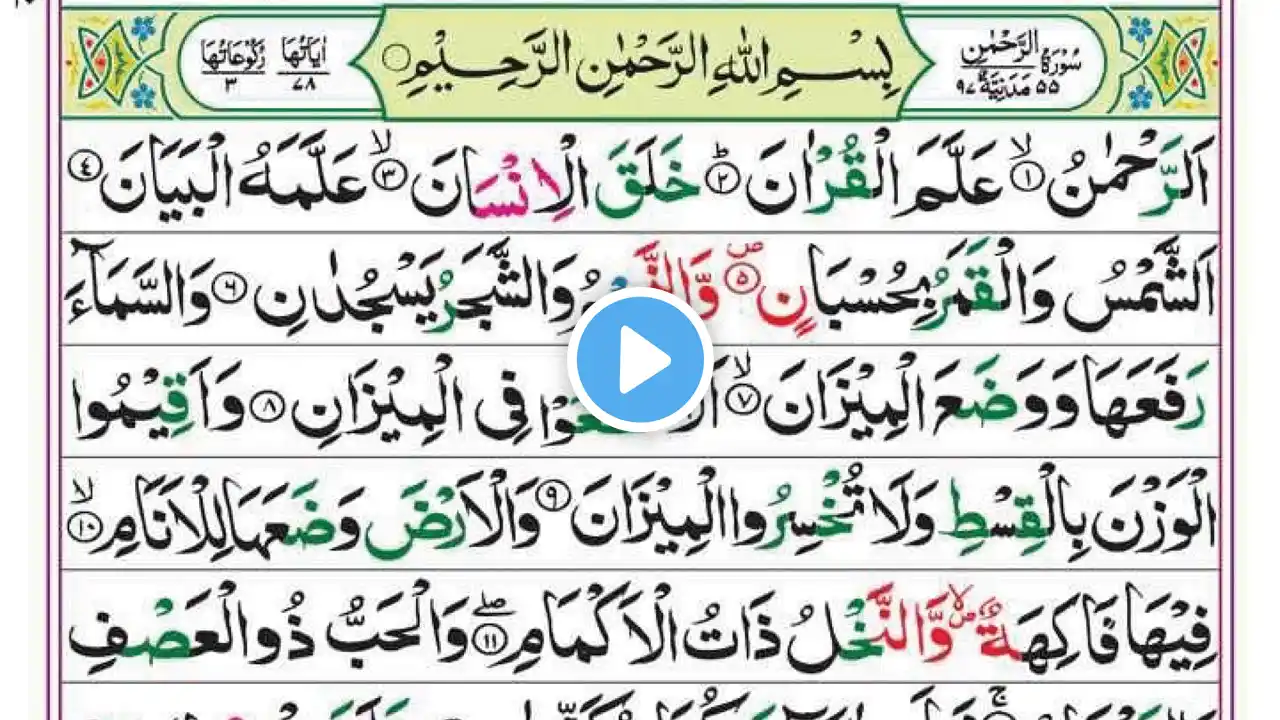 سُوْرَةُ الرَّحْمٰنِ
٥٥ مَدَنِيَّةٌ ٩٧
بِسْمِ اللّٰهِ الرَّحْمٰنِ الرَّحِيْمِ
اٰيَاتُهَا ٧٨
رُكُوْعَاتُهَا ٣
اَلرَّحْمٰنُ ۙ﴿١﴾ عَلَّمَ الْقُرْاٰنَ ؕ﴿٢﴾ خَلَقَ الْاِنْسَانَ ۙ﴿٣﴾ عَلَّمَهُ الْبَيَانَ ﴿٤﴾
اَلشَّمْسُ وَالْقَمَرُ بِحُسْبَانٍ ۪﴿٥﴾ وَّالنَّ‍ـ‍ـ‍ـ‍ـ‍مُ وَالشَّجَرُ يَسْجُدٰنِ ﴿٦﴾ وَالسَّمَآءَ
رَفَعَهَا وَوَضَعَ الْمِيْزَانَ ۙ﴿٧﴾ فِى الْمِيْزَانِ ﴿٨﴾ وَاَقِيْمُوا
الْوَزْنَ بِالْقِسْطِ وَلَا تُخْسِرُوا الْمِيْزَانَ ﴿٩﴾ وَالْاَرْضَ وَضَعَهَا لِلْاَنَامِ ۙ﴿١٠﴾
فِيْهَا فَاكِهَةٌ ۪ۙ وَّالنَّخْلُ ذَاتُ الْاَكْمَامِ ۖ﴿١١﴾ وَالْحَبُّ ذُو الْعَصْفِ